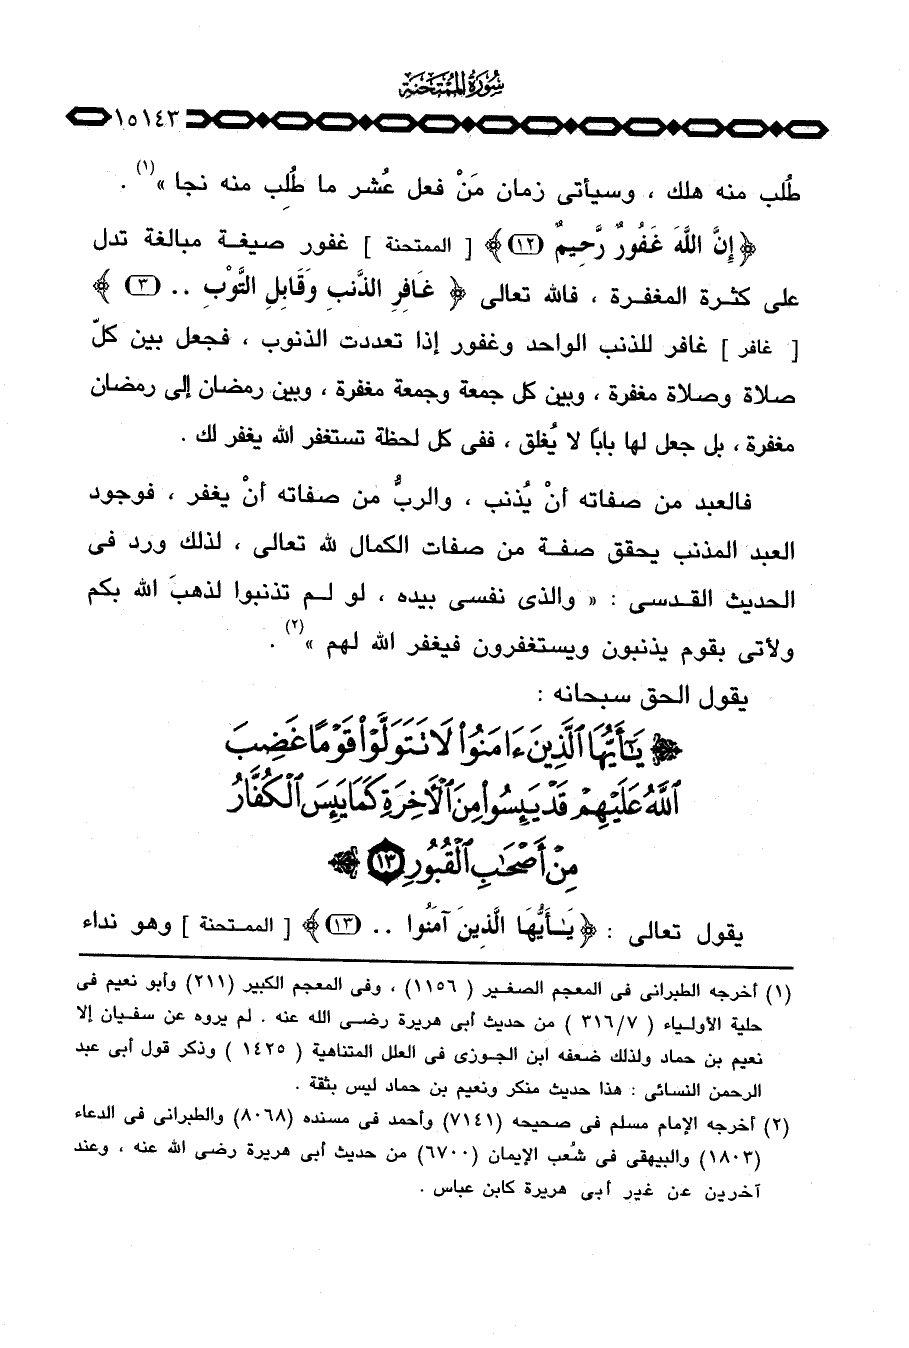 سُورَةُ الممتَحنَة
١٥١٤٣
طُلب منه هلك ، وسيأتى زمان مَنْ فعل عُشر ما طُلِب منه نجا »(١) .
﴿إِنَّ اللَّهَ غَفُورٌ رَّحِيمٌ (١٢)﴾ [ الممتحنة ] غفور صيغة مبالغة تدل
على كثرة المغفرة ، فالله تعالى ﴿ غَافِرِ الذَّنبِ وَقَابِلِ التَّوْبِ .. (٣) ﴾
[ غافر ] غافر للذنب الواحد وغفور إذا تعددت الذنوب ، فجعل بين كلّ
صلاة وصلاة مغفرة ، وبين كل جمعة وجمعة مغفرة ، وبين رمضان إلى رمضان
مغفرة ، بل جعل لها باباً لا يُغلق ، ففى كل لحظة تستغفر الله يغفر لك .
فالعبد من صفاته أنْ يُذنب ، والربُّ من صفاته أنْ يغفر ، فوجود
العبد المذنب يحقق صفة من صفات الكمال لله تعالى ، لذلك ورد فى
الحديث القدسى : « والذى نفسى بيده ، لو لم تذنبوا لذهبَ الله بكم
ولأتى بقوم يذنبون ويستغفرون فيغفر الله لهم »(٢) .
يقول الحق سبحانه :
﴿ يَٰٓأَيُّهَا ٱلَّذِينَ ءَامَنُوا۟ لَا تَتَوَلَّوْا۟ قَوْمًا غَضِبَ
ٱللَّهُ عَلَيْهِمْ قَدْ يَئِسُوا۟ مِنَ ٱلْأَخِرَةِ كَمَا يَئِسَ ٱلْكُفَّارُ
مِنْ أَصْحَٰبِ ٱلْقُبُورِ ١٣ ﴾
يقول تعالى : ﴿يَـٰأَيُّهَا الَّذِينَ آمَنُوا .. (١٣)﴾ [ الممتحنة ] وهو نداء
(١) أخرجه الطبرانى فى المعجم الصغير ( ١١٥٦) ، وفى المعجم الكبير (٢١١) وأبو نعيم فى
حلية الأولياء ( ٣١٦/٧ ) من حديث أبى هريرة رضى الله عنه . لم يروه عن سفيان إلا
نعيم بن حماد ولذلك ضعفه ابن الجوزى فى العلل المتناهية ( ١٤٢٥ ) وذكر قول أبى عبد
الرحمن النسائى : هذا حديث منكر ونعيم بن حماد ليس بثقة .
(٢) أخرجه الإمام مسلم فى صحيحه (٧١٤١) وأحمد فى مسنده (٨٠٦٨) والطبرانى فى الدعاء
(١٨٠٣) والبيهقى فى شُعب الإيمان (٦٧٠٠) من حديث أبى هريرة رضى الله عنه ، وعند
آخرين عن غير أبى هريرة كابن عباس .